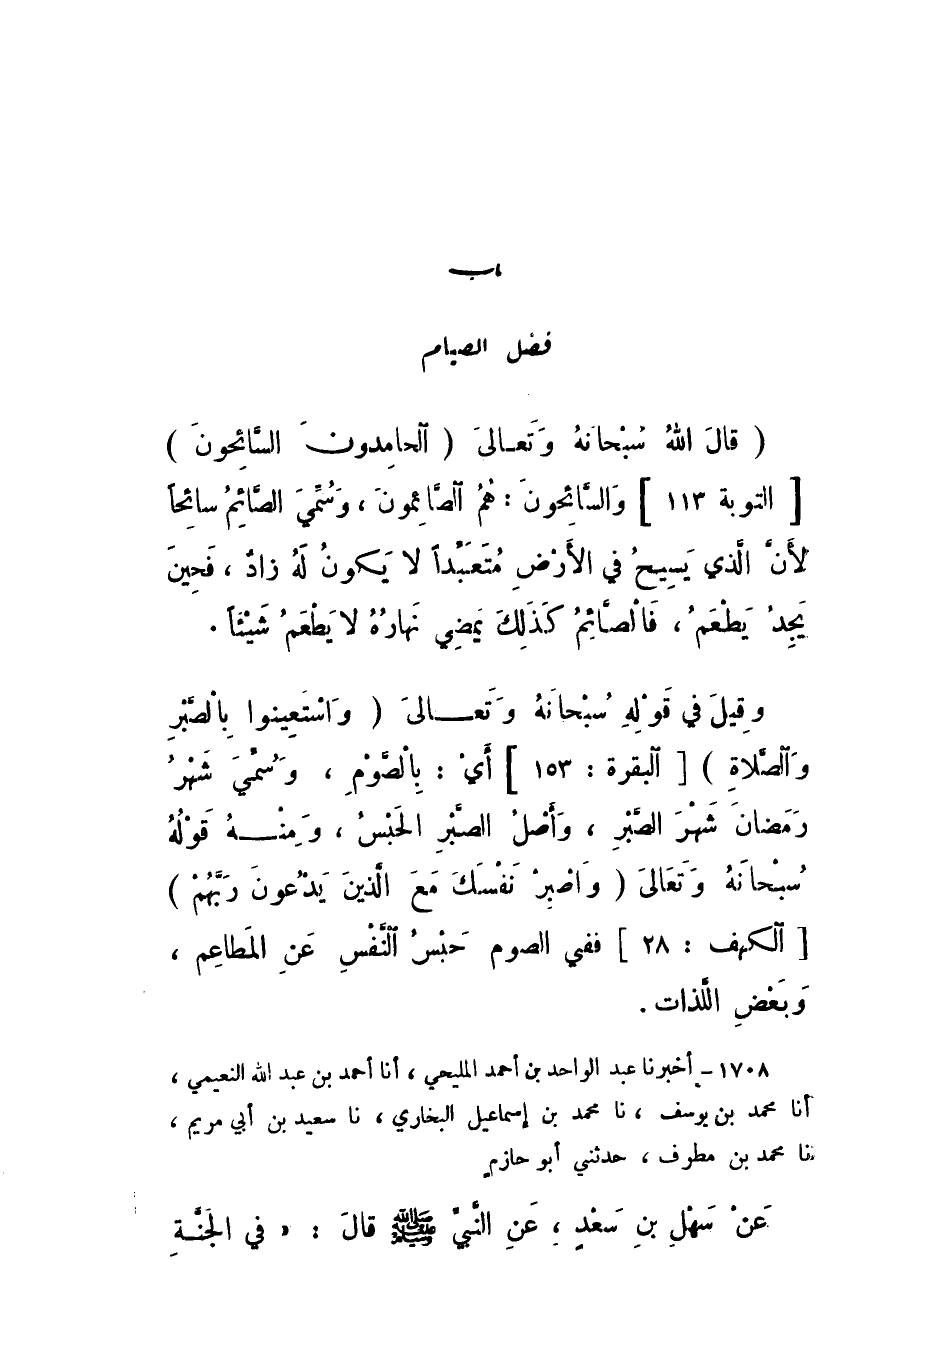 باب
فضل الصيام
( قالَ اللهُ سُبْحانَهُ وَتَعـالىَ ( ٱلحامِدونَ السَّائِحونَ )
[ التوبة ١١٣ ] وَالسَّائِحونَ : هُمُ ٱلصَّائِمونَ ، وَسُمِّيَ الصَّائِمُ سائِحاً
لأَنَّ الَّذي يَسِيحُ في الأَرْضِ مُتَعَبِّداً لا يَكونُ لَهُ زادٌ ، فَحِينَ
يَجِدُ يَطْعَمُ ، فَالْصَّائِمُ كَذَلِكَ يَمضِي نَهارُهُ لا يَطْعَمُ شَيْئاً .
وقِيلَ في قَوْلِهِ سُبْحانَهُ وَتَعــالىَ ( وَاسْتَعِينوا بِالْصَّبْرِ
وَٱلصَّلاةِ ) [ ٱلبقرة : ١٥٣ ] أَيْ : بِالْصَّوْمِ ، وَسُمِّيَ شَهْرُ
رَمَضانَ شَهْرَ الصَّبْرِ ، وَأَصْلُ الصَّبْرِ الحَبْسُ ، وَمِنْــهُ قَوْلُهُ
سُبْحانَهُ وَتَعَالىَ ( وَاصْبِرْ نَفْسَكَ مَعَ الَّذينَ يَدْعونَ رَبَّهُمْ )
[ ٱلكهف : ٢٨ ] ففي الصوم حَبْسُ ٱلنَّفْسِ عَنِ المَطاعِمِ ،
وَبَعْضِ اللَّذات .
١٧٠٨ - أخبرنا عبد الواحد بن أحمد المليحي ، أنا أحمد بن عبد الله النعيمي ،
أنا محمد بن يوسف ، نا محمد بن إسماعيل البخاري ، نا سعيد بن أبي مريم ،
نا محمد بن مطرف ، حدثني أبو حازم
عَنْ سَهْلِ بنِ سَعْدٍ ، عَنِ النَّبيِّ ﷺ قالَ : « في الجَنَّةِ